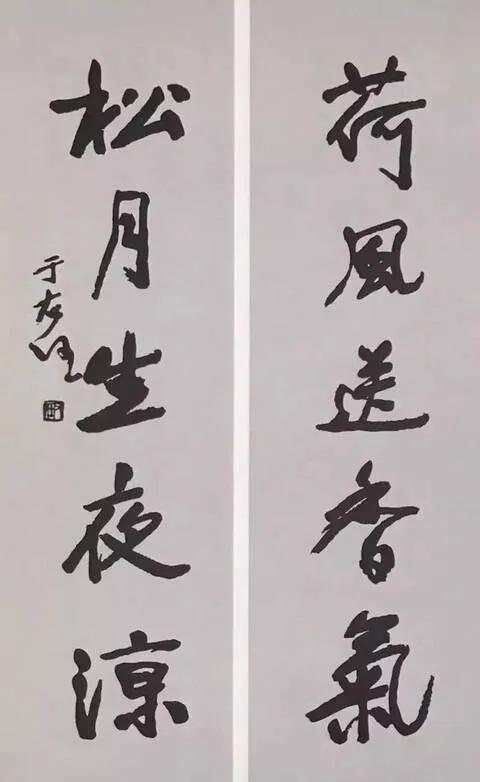 荷風送香氣
松月生夜涼
于右任